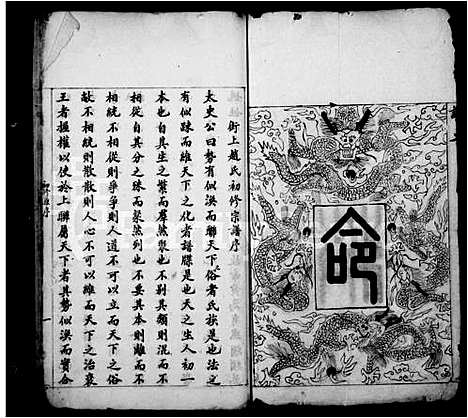 命
街上趙氏初修宗譜序
太史公曰勢有似渙而聯天下俗者氏族是也法之
有似疎而維天下之化者譜牒是也天之生人初一
本也自其生之繁而羣然聚也不别其類則混而不
相從自其分之殊而渙然列也不要其本則離而不
相統不相從則爭爭則人道不可以立而天下之俗
敝不相統則散散則人心不可以維而天下之治衰
王者握權以使於上聯屬天下者其勢似渙而實合
一